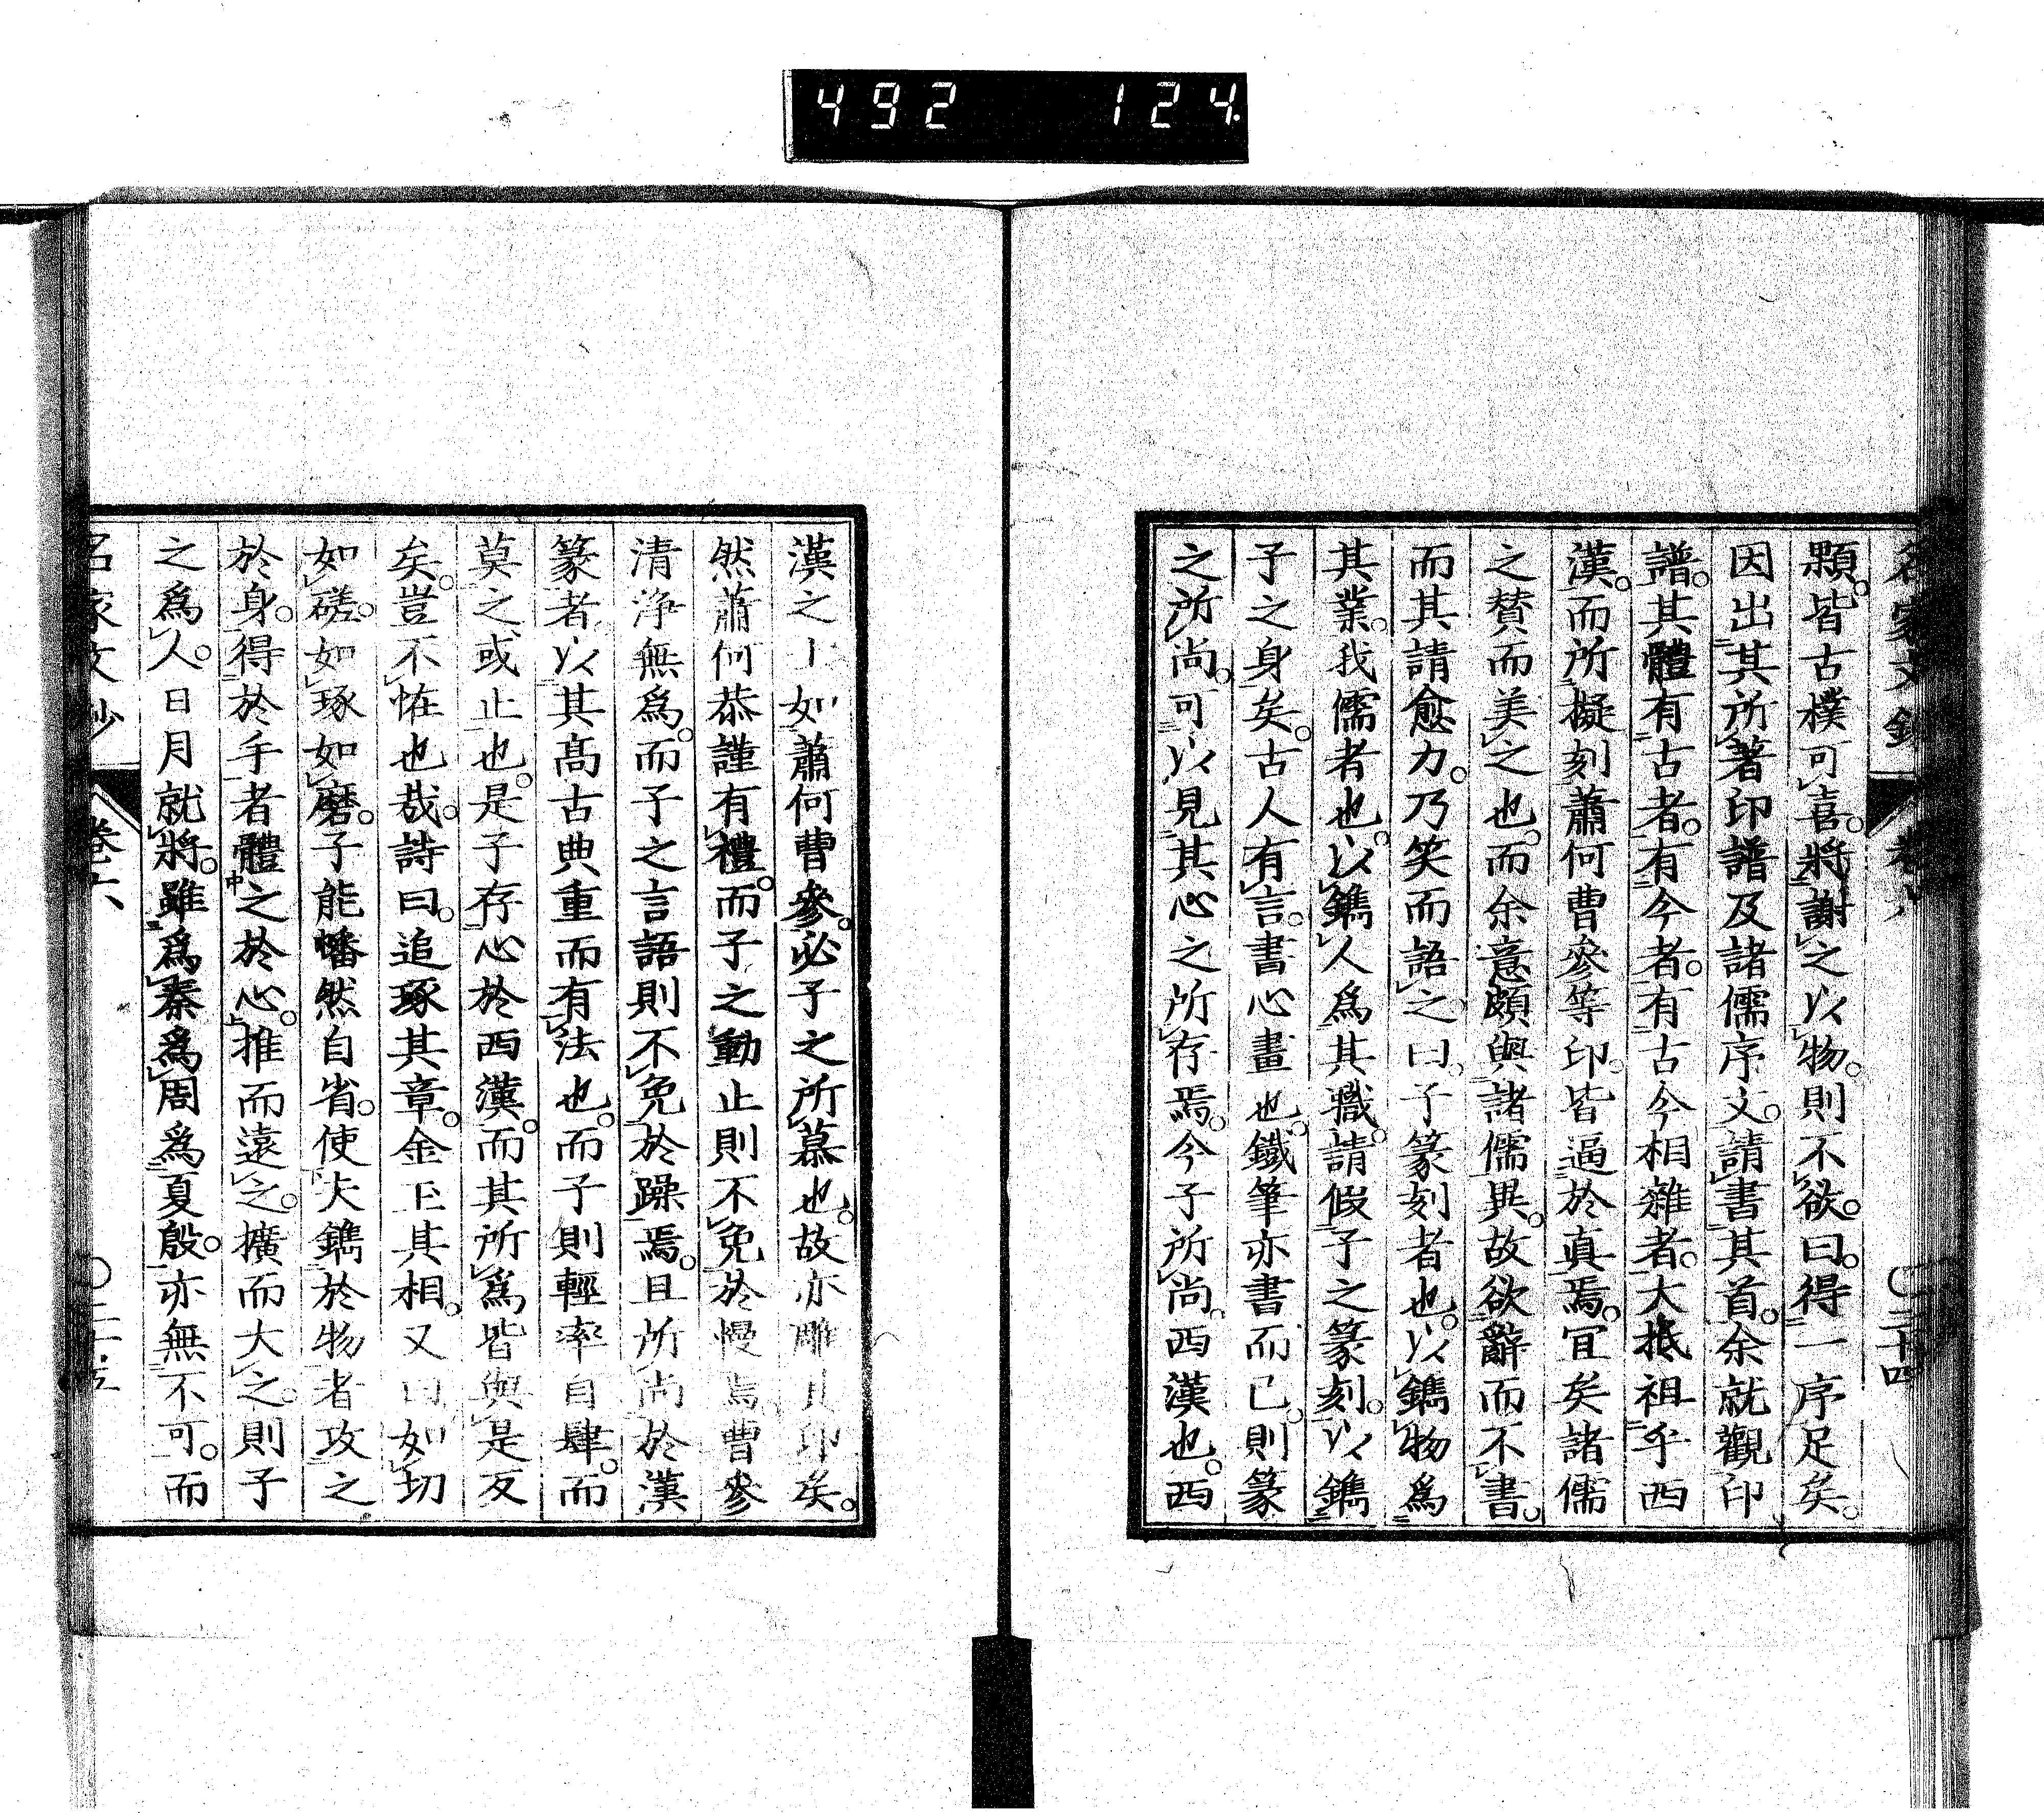 492 124
名家文鈔 卷六 〇二十四
顆。皆古樸可喜。將謝之以物。則不欲。曰。得一序足矣。
因出其所著印譜及諸儒序文。請書其首。余就觀印
譜。其體有古者。有今者。有古今相雜者。大抵祖乎西
漢。而所擬刻蕭何曹參等印。皆逼於真焉。宜矣諸儒
之賛而美之也。而余意頗與諸儒異。故欲辭而不書。
而其請愈力。乃笑而語之曰。子篆刻者也。以鐫物爲
其業。我儒者也。以鐫人爲其職。請假子之篆刻。以鐫
子之身矣。古人有言。書心畫也。鐵筆亦書而已。則篆
之所尚。可以見其心之所存焉。今子所尚。西漢也。西
漢之 如蕭何曹參。必子之所慕也。故亦雕 印矣。
然蕭何恭謹有禮。而子之動止則不免於慢焉曹參
清浄無爲。而子之言語則不免於躁焉。且所尚於漢
篆者以其高古典重而有法也。而子則輕率自肆。而
莫之或止也。是子存心於西漢。而其所爲皆與是反
矣。豈不恠也哉。詩曰。追琢其章。金玉其相。又曰如切
如磋。如琢如磨。子能幡然自省。使夫鐫於物者攻之
於身。得於手者體之於心。推而遠之。擴而大之。則子
之爲人。日月就將。雖爲秦爲周爲夏殷。亦無不可。而
名家文鈔 卷六 〇二十五